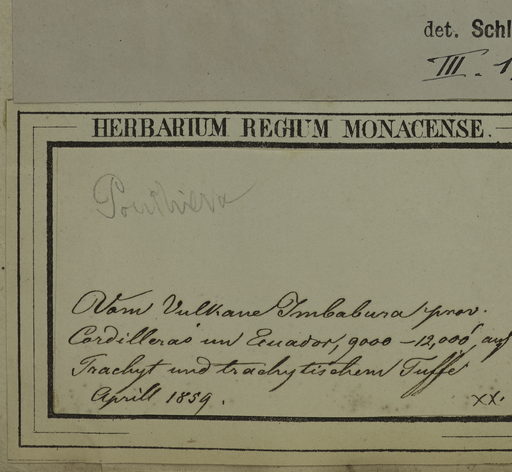 det. Schl
III. 1
HERBARIUM REGIUM MONACENSE.
Pourthiera
Vom Vulkane Imbabura prov.
Cordilleras un Ecuador, 9000–12,000' auf
Trachyt und trachytischem Tuffe
Aprill 1859.
XX.